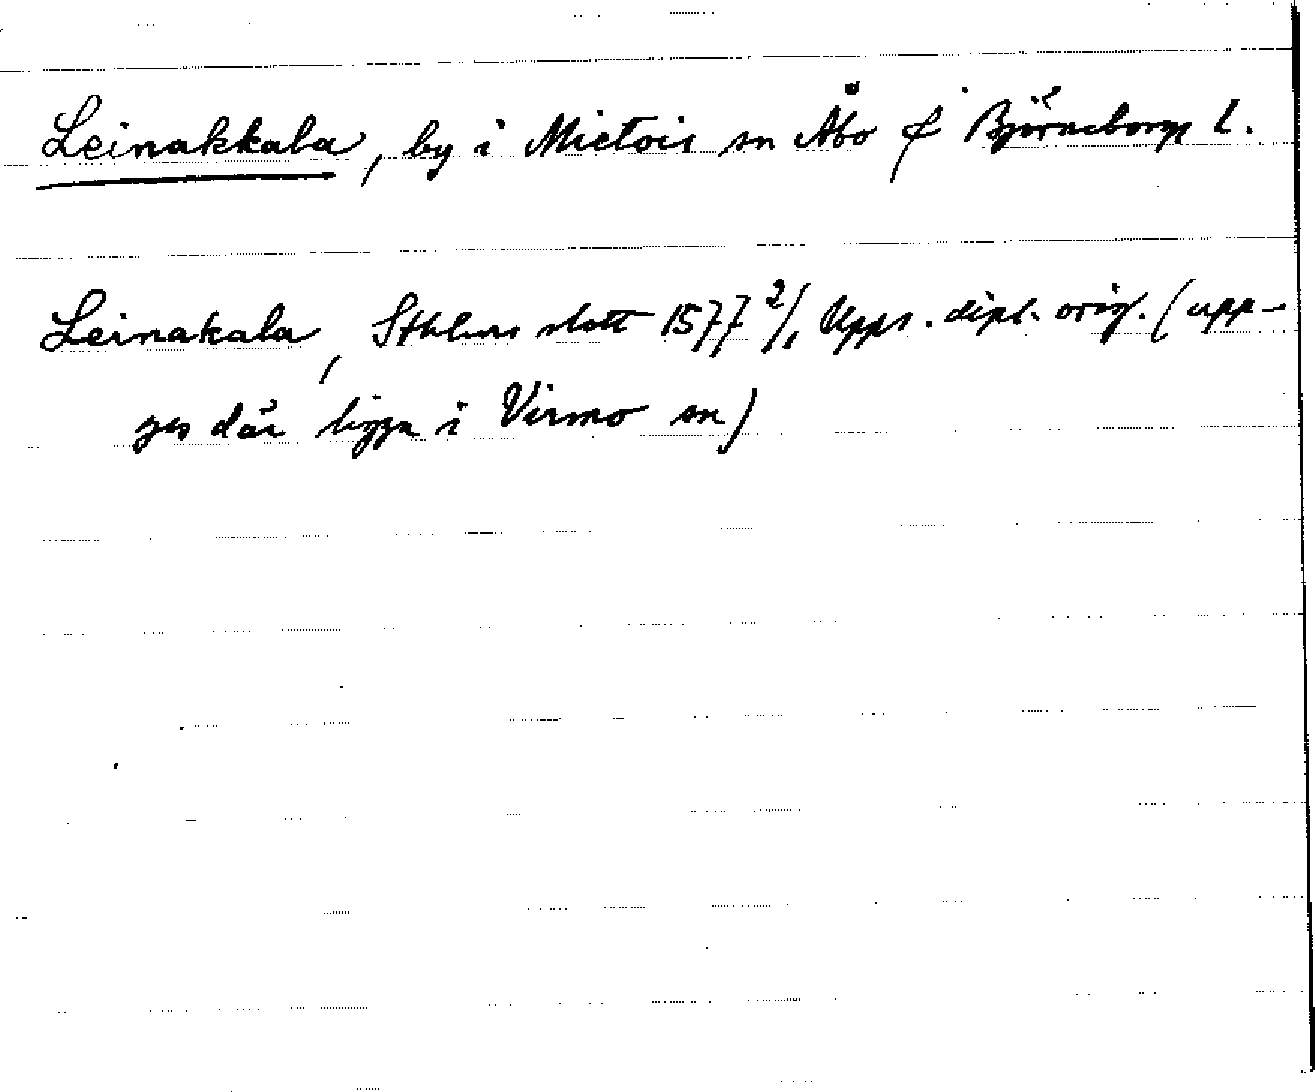 Leinakkala, by i Mietois sn Åbo & Björneborgs l.
Leinakala, Sthlms slott 1577 2/1 Upps. dipl. orig. (upp-
ges där ligga i Virmo sn)